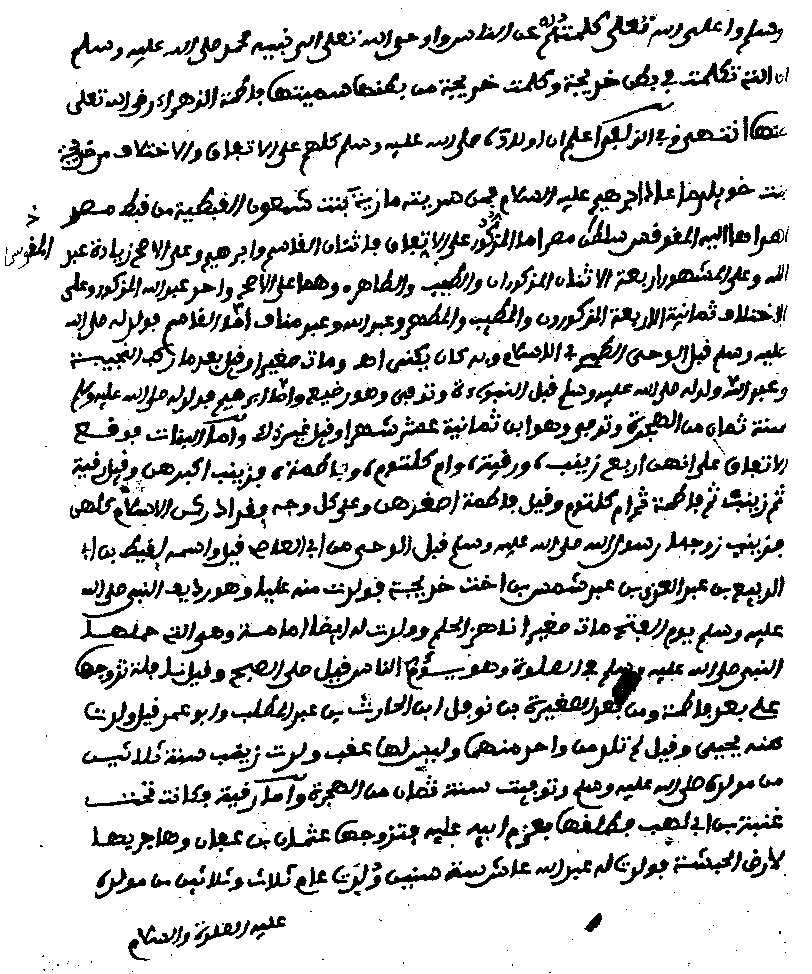 وسلم واعلمى الله تعلى كلمتهم عن الناس واوحى الله تعلى الى نبيه محمد صلى الله عليه وسلم
ان التى تكلمت فى بطن خديجة وكلمت خديجة من بطنها سميتها فاطمة الزهراء رضى الله تعلى
عنها انتهى وفى اعلم ان اولاده صلى الله عليه وسلم كلهم على الاتفاق والاختلاف من خديجة
بنت خويلد ما عدا ابرهيم عليه السلام فمن سريته مارية بنت شمعون القبطية من قبط مصر
اهداها اليه المقوقس سلطان مصر اما الذكور على الاتفاق فاثنان القاسم وابرهيم وعلى الاصح زيادة عبد
المقوس
الله وعلى المشهور اربعة الاثنان المذكوران والطيب والطاهر وهما على الاصح واحد عبد الله المذكور وعلى
الاختلاف ثمانية الاربعة المذكورون والمطيب والمطهر وعبد الله وعبد مناف اما القاسم فولد له صلى الله
عليه وسلم قبل الوحى فى الاسلام وبه كان يكنى ومات صغيرا وقيل بعد ما ركب النجيبة
وعبد الله ولد له صلى الله عليه وسلم قبل النبوءة وتوفى وهو رضيع واما ابرهيم فولد له صلى الله عليه وسلم
سنة ثمان من الهجرة وتوفى وهو ابن ثمانية عشر شهرا وقيل غير ذلك واما البنات فوقع
الاتفاق على انهن اربع زينب ورقية وام كلثوم وفاطمة فزينب اكبرهن وقيل رقية
ثم زينب ثم فاطمة ثم ام كلثوم وقيل فاطمة اصغرهن وعلى كل وجه وقد ادركن الاسلام كلهن
فزينب زوجها رسول الله صلى الله عليه وسلم قبل الوحى من ابى العاص قيل واسمه لقيط بن ابى
الربيع بن عبد العزى بن عبد شمس بن اخت خديجة فولدت منه عليا وهو رديف النبى صلى الله
عليه وسلم يوم الفتح مات صغيرا ناهز الحلم وولدت له ايضا امامة وهى التى حملها
النبى صلى الله عليه وسلم فى الصلوة وهو يؤم الناس قيل صلى الصبح وقيل تزوجها
على بعد فاطمة ومن بعد المغيرة بن نوفل ابن الحارث بن عبد المطلب وابو عمر قيل ولدت
منه يحيى وقيل لم تلد من واحد منهما وليس لها عقب ولدت زينب سنة ثلاثين
من مولده صلى الله عليه وسلم وتوفيت سنة ثمان من الهجرة واما رقية فكانت تحت
عتبة بن ابى لهب فطلقها بعزم ابيه عليه فتزوجها عثمان بن عفان وهاجر بها
لارض الحبشة فولدت له عبد الله عاش ستة سنين ولدت عام ثلاث وثلاثين من مولده
عليه الصلوة والسلام